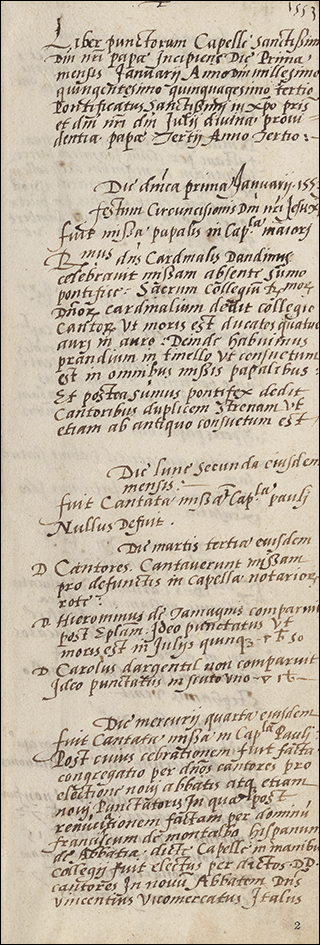 1553
Liber punctorum Capelle Sanctissimi
Dni nri papæ Incipiens Die Prima
mensis Januarij Anno Dni millesimo
quingentesimo quinquagesimo tertio
Pontificatus Sanctissimi in Xpo pris
et dni nri dni Julij diuina proui-
dentia papæ Tertij Anno Tertio:
Die dnica prima Januarij 155
festum Circuncisionis Dni nri Jesu X
fuit missa papalis in Capla maiori
Rmus dns Cardinalis Dandinus
celebrauit missam absente sumo
pontifice: Sacrum collegiū Rmor
Dnor cardinalium dedit collegio
Cantor Vt moris est ducatos quatuo
auri in auro: Deinde habuimus
prandium in tinello Vt consuetum
est in omnibus missis papalibus:
Et postea sūmus pontifex dedit
Cantoribus duplicem strenam Vt
etiam ab antiquo consuetum est
Die lune secunda eiusdem
mensis
fuit Cantata missa Capla pauli
Nullus Defuit.
Die martis tertia eiusdem
D Cantores. Cantauerunt missam
pro defunctis in capella notarior
rote:
D Hieronimus de comparuit
post Eplam. Ideo punctatus Vt
moris est in Julijs quinq3
D Carolus dargentil non comparuit
Ideo punctatus in scuto uno
Die mercurij quarta eiusdem
fuit Cantata missa in Capla Pauli:
Post cuius celebrationem fuit facta
congregatio per dnos cantores pro
electione noui abbatis atq etiam
noui Punctatoris In qua post
renuntionem factam per dominū
franciscum de montalbo hispanum
de Abbatia dicte Capelle in manibu
collegij fuit electus per dictos D.D.
cantores In nouū Abbatem Dns
uincentius Vicomercatus Italus
2